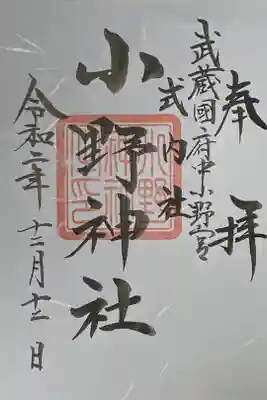 奉拝
武蔵國府中小野宮
式内社
小野神社
令和二年 十二月十二日